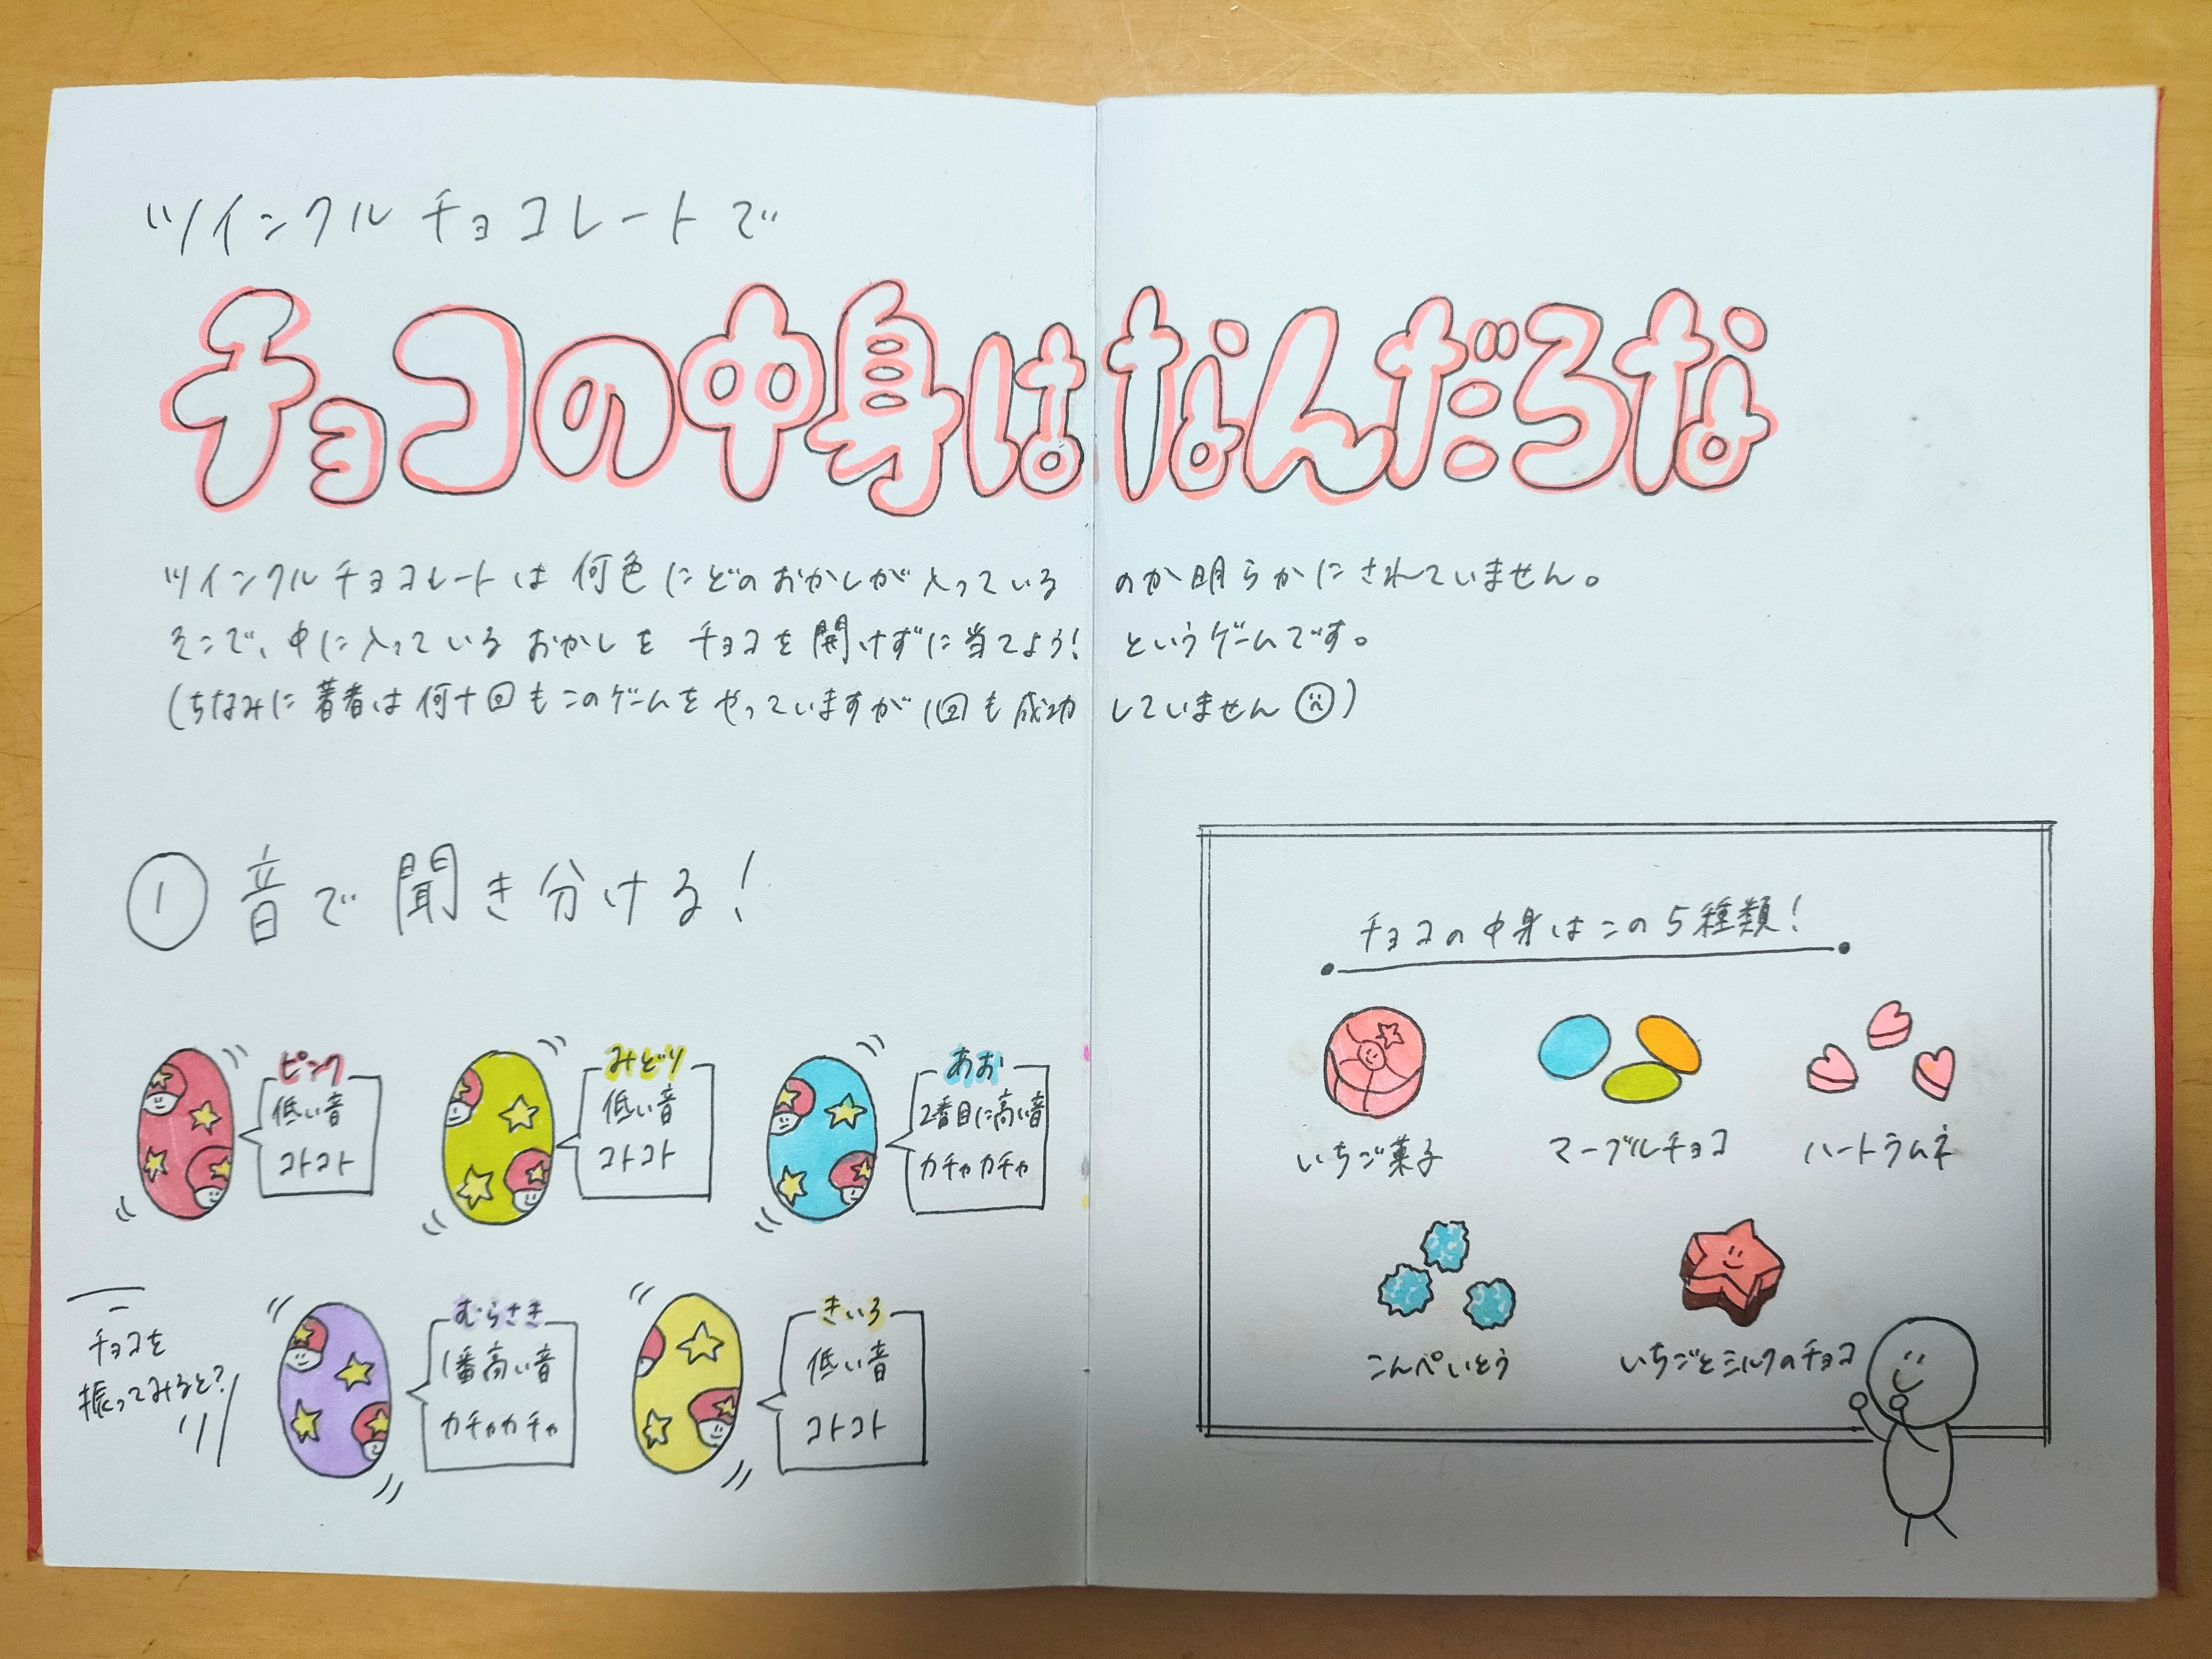 ツインクルチョコレートで
チョコの中身はなんだろな
ツインクルチョコレートは何色にどのおかしが入っているのか明らかにされていません。
そこで、中に入っているおかしをチョコを開けずに当てよう!というゲームです。
(ちなみに著者は何十回もこのゲームをやっていますが1回も成功していません)
① 音で聞き分ける!
ピンク
低い音
コトコト
みどり
低い音
コトコト
あお
2番目に高い音
カチャカチャ
チョコを
振ってみると?
むらさき
1番高い音
カチャカチャ
きいろ
低い音
コトコト
チョコの中身はこの5種類!
いちご菓子
マーブルチョコ
ハートラムネ
こんぺいとう
いちごとミルクのチョコ